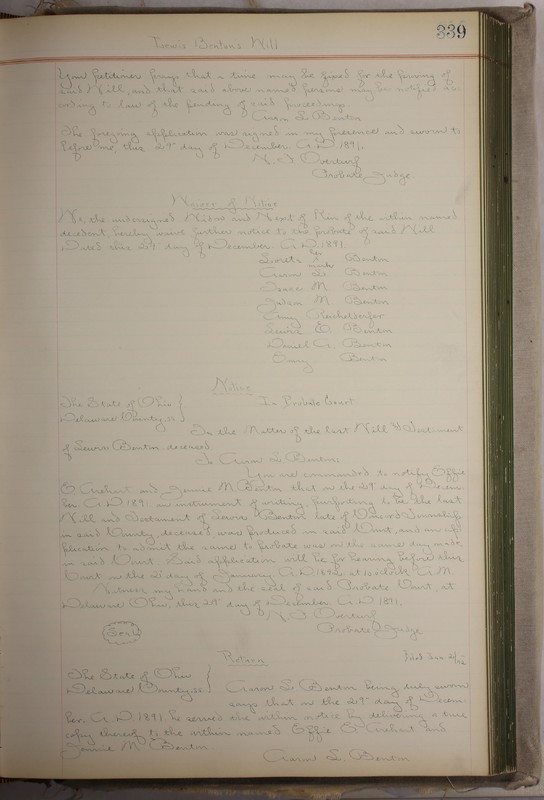 339
Lewis Benton's Will
Your petitioner prays that a time may be fixed for the proving of
said Will, and that said above named persons may be notified ac-
cording to law of the pending of said proceedings.
Aaron L. Benton
The foregoing application was signed in my presence and sworn to
before me, this 29" day of December A.D. 1891.
Probate Judge
Waiver of Notice
We, the undersigned Widow and Next of Kin of the within named
decedent, hereby waive further notice to the Probate of said Will
Dated this 29 day of December A.D. 1891.
her
Benton
mark
Aaron L. Benton
Isaac M. Benton
Benton
Lewis Benton
Daniel Benton
Benton
Notice
The State of Ohio
Delaware County, ss
In Probate Court
In the Matter of the last Will & Testament
of Lewis Benton deceased
To Aaron L. Benton:
You are commanded to notify Effie
and Jennie M. Benton that on the 29" day of Decem-
ber A.D. 1891 an instrument of writing purporting to be the last
Will and Testament of Lewis Benton late of Township
in said County, deceased, was produced in said Court, and an ap-
plication to admit the same to Probate was on the same day made
in said Court. Said application will be for hearing before this
Court on the 2" day of January A.D. 1892 at 10 o'clock A.M.
Witness my hand and the seal of said Probate Court, at
Delaware Ohio, this 29" day of December A.D. 1891.
Probate Judge
(Seal)
Return
The State of Ohio
Delaware County, ss
Aaron L. Benton being duly sworn
says that on the 29" day of Decem-
ber A.D. 1891 he served the within notice by delivering a true
copy thereof to the within named Effie and
Jennie M. Benton.
Aaron L. Benton